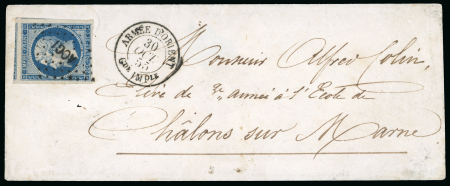 ARMÉE D'ORIENT
30
OCT
55
Monsieur Alfred Colin,
Élève de 2e année à l'École de
Châlons sur Marne